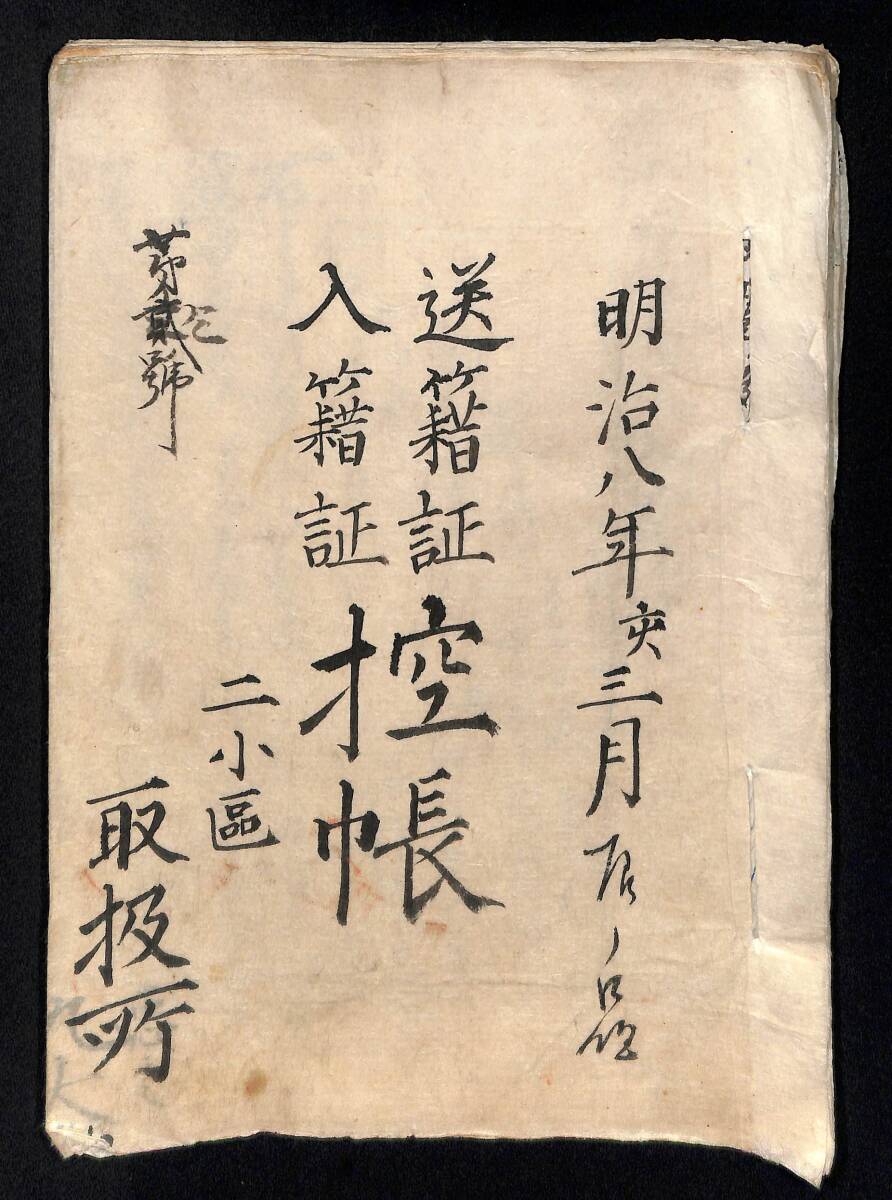 明治八年亥三月
送籍証
入籍証
控帳
二小區
取扱所
第貳號